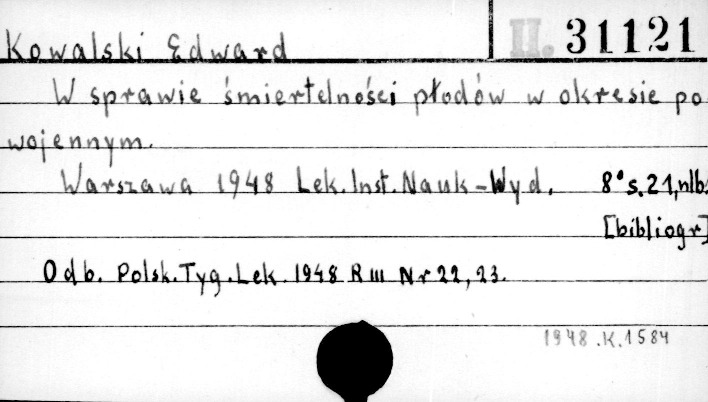 Kowalski Edward
II. 31121
W sprawie śmiertelności płodów w okresie po
wojennym.
Warszawa 1948 Lek. Inst. Nauk-Wyd. 8° s. 21, nlb.
[bibliogr]
Odb. Polsk. Tyg. Lek. 1948 R III Nr 22, 23.
1948.K.1584